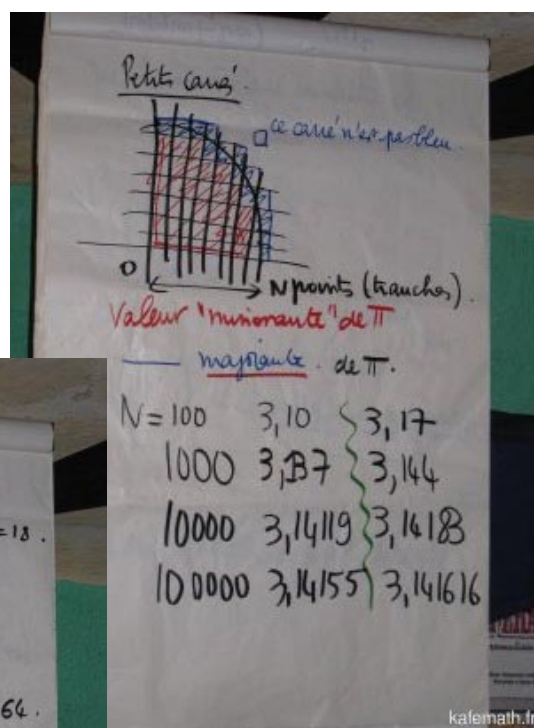 Petits carrés.
ce carré n'est pas bleu.
O
N points (tranches).
Valeur "minorante" de π
majorante de π.
N = 100 3,10 3,17
1000 3,137 3,144
10000 3,14119 3,14183
100000 3,14155 3,141616
=18.
64.
kafemath.fr